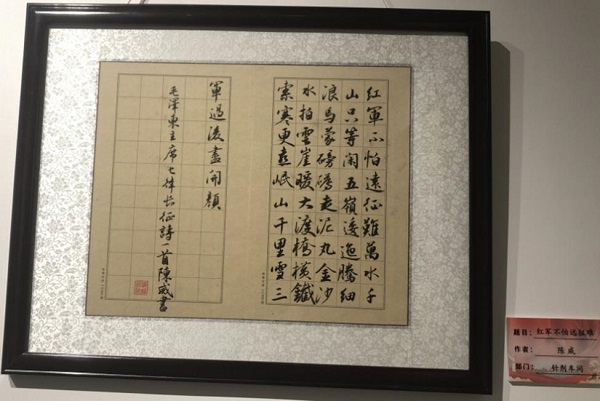 紅軍不怕遠征難萬水千
山只等閑五嶺逶迤騰細
浪烏蒙磅礴走泥丸金沙
水拍雲崖暖大渡橋橫鐵
索寒更喜岷山千里雪三
軍過後盡開顏
毛澤東主席七律長征詩一首陳威書
题目：红军不怕远征难
作者：陈威
部门：针剂车间